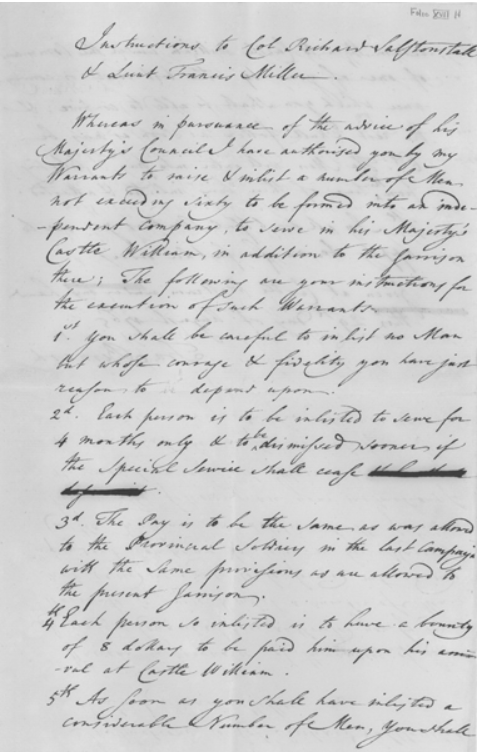 Instructions to Col Richard Salstonstall
& Lieut Francis Miller.
Whereas in pursuance of the advice of his
Majesty's Council I have authorised you by my
Warrants to raise & inlist a number of Men
not exceeding sixty to be formed into an inde-
-pendent Company, to serve in his Majesty's
Castle William, in addition to the Garrison
there; The following are your instructions for
the execution of such Warrants
1st. You shall be careful to inlist no Man
but whose courage & fidelity you have just
reason to depend upon.
2d. Each person is to be inlisted to serve for
4 months only & to be dismissed sooner if
the special Service shall cease
3d The Pay is to be the same as was allowed
to the Provincial Soldiers in the last Campaign
with the same provisions as are allowed to
the present Garrison.
4th Each person so inlisted is to have a bounty
of 8 dollars to be paid him upon his arri-
-val at Castle William.
5th As soon as you shall have inlisted a
considerable Number of Men, you shall